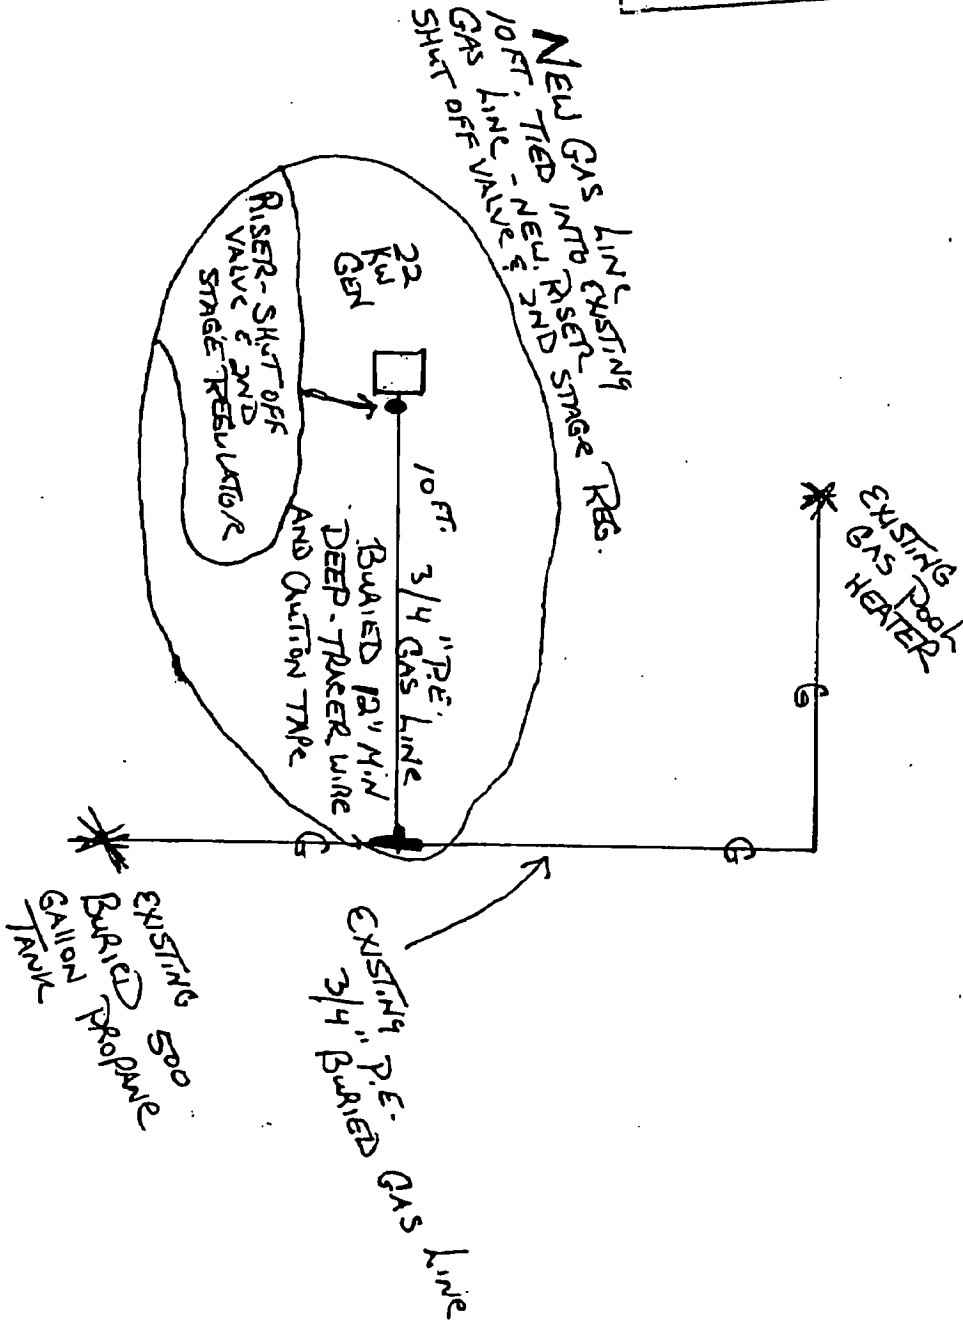 NEW GAS LINE
10 FT. TIED INTO EXISTING
GAS LINE - NEW RISER
SHUT OFF VALVE & 2ND STAGE REG.
EXISTING
GAS POOL
HEATER
22
KW
GEN
RISER - SHUT OFF
VALVE & 2ND
STAGE REGULATOR
10 FT. 3/4" P.E.
GAS LINE
BURIED 12" MIN
DEEP - TRACER WIRE
AND CAUTION TAPE
G
G
G
EXISTING P.E.
3/4" BURIED GAS LINE
EXISTING
BURIED 500
GALLON PROPANE
TANK